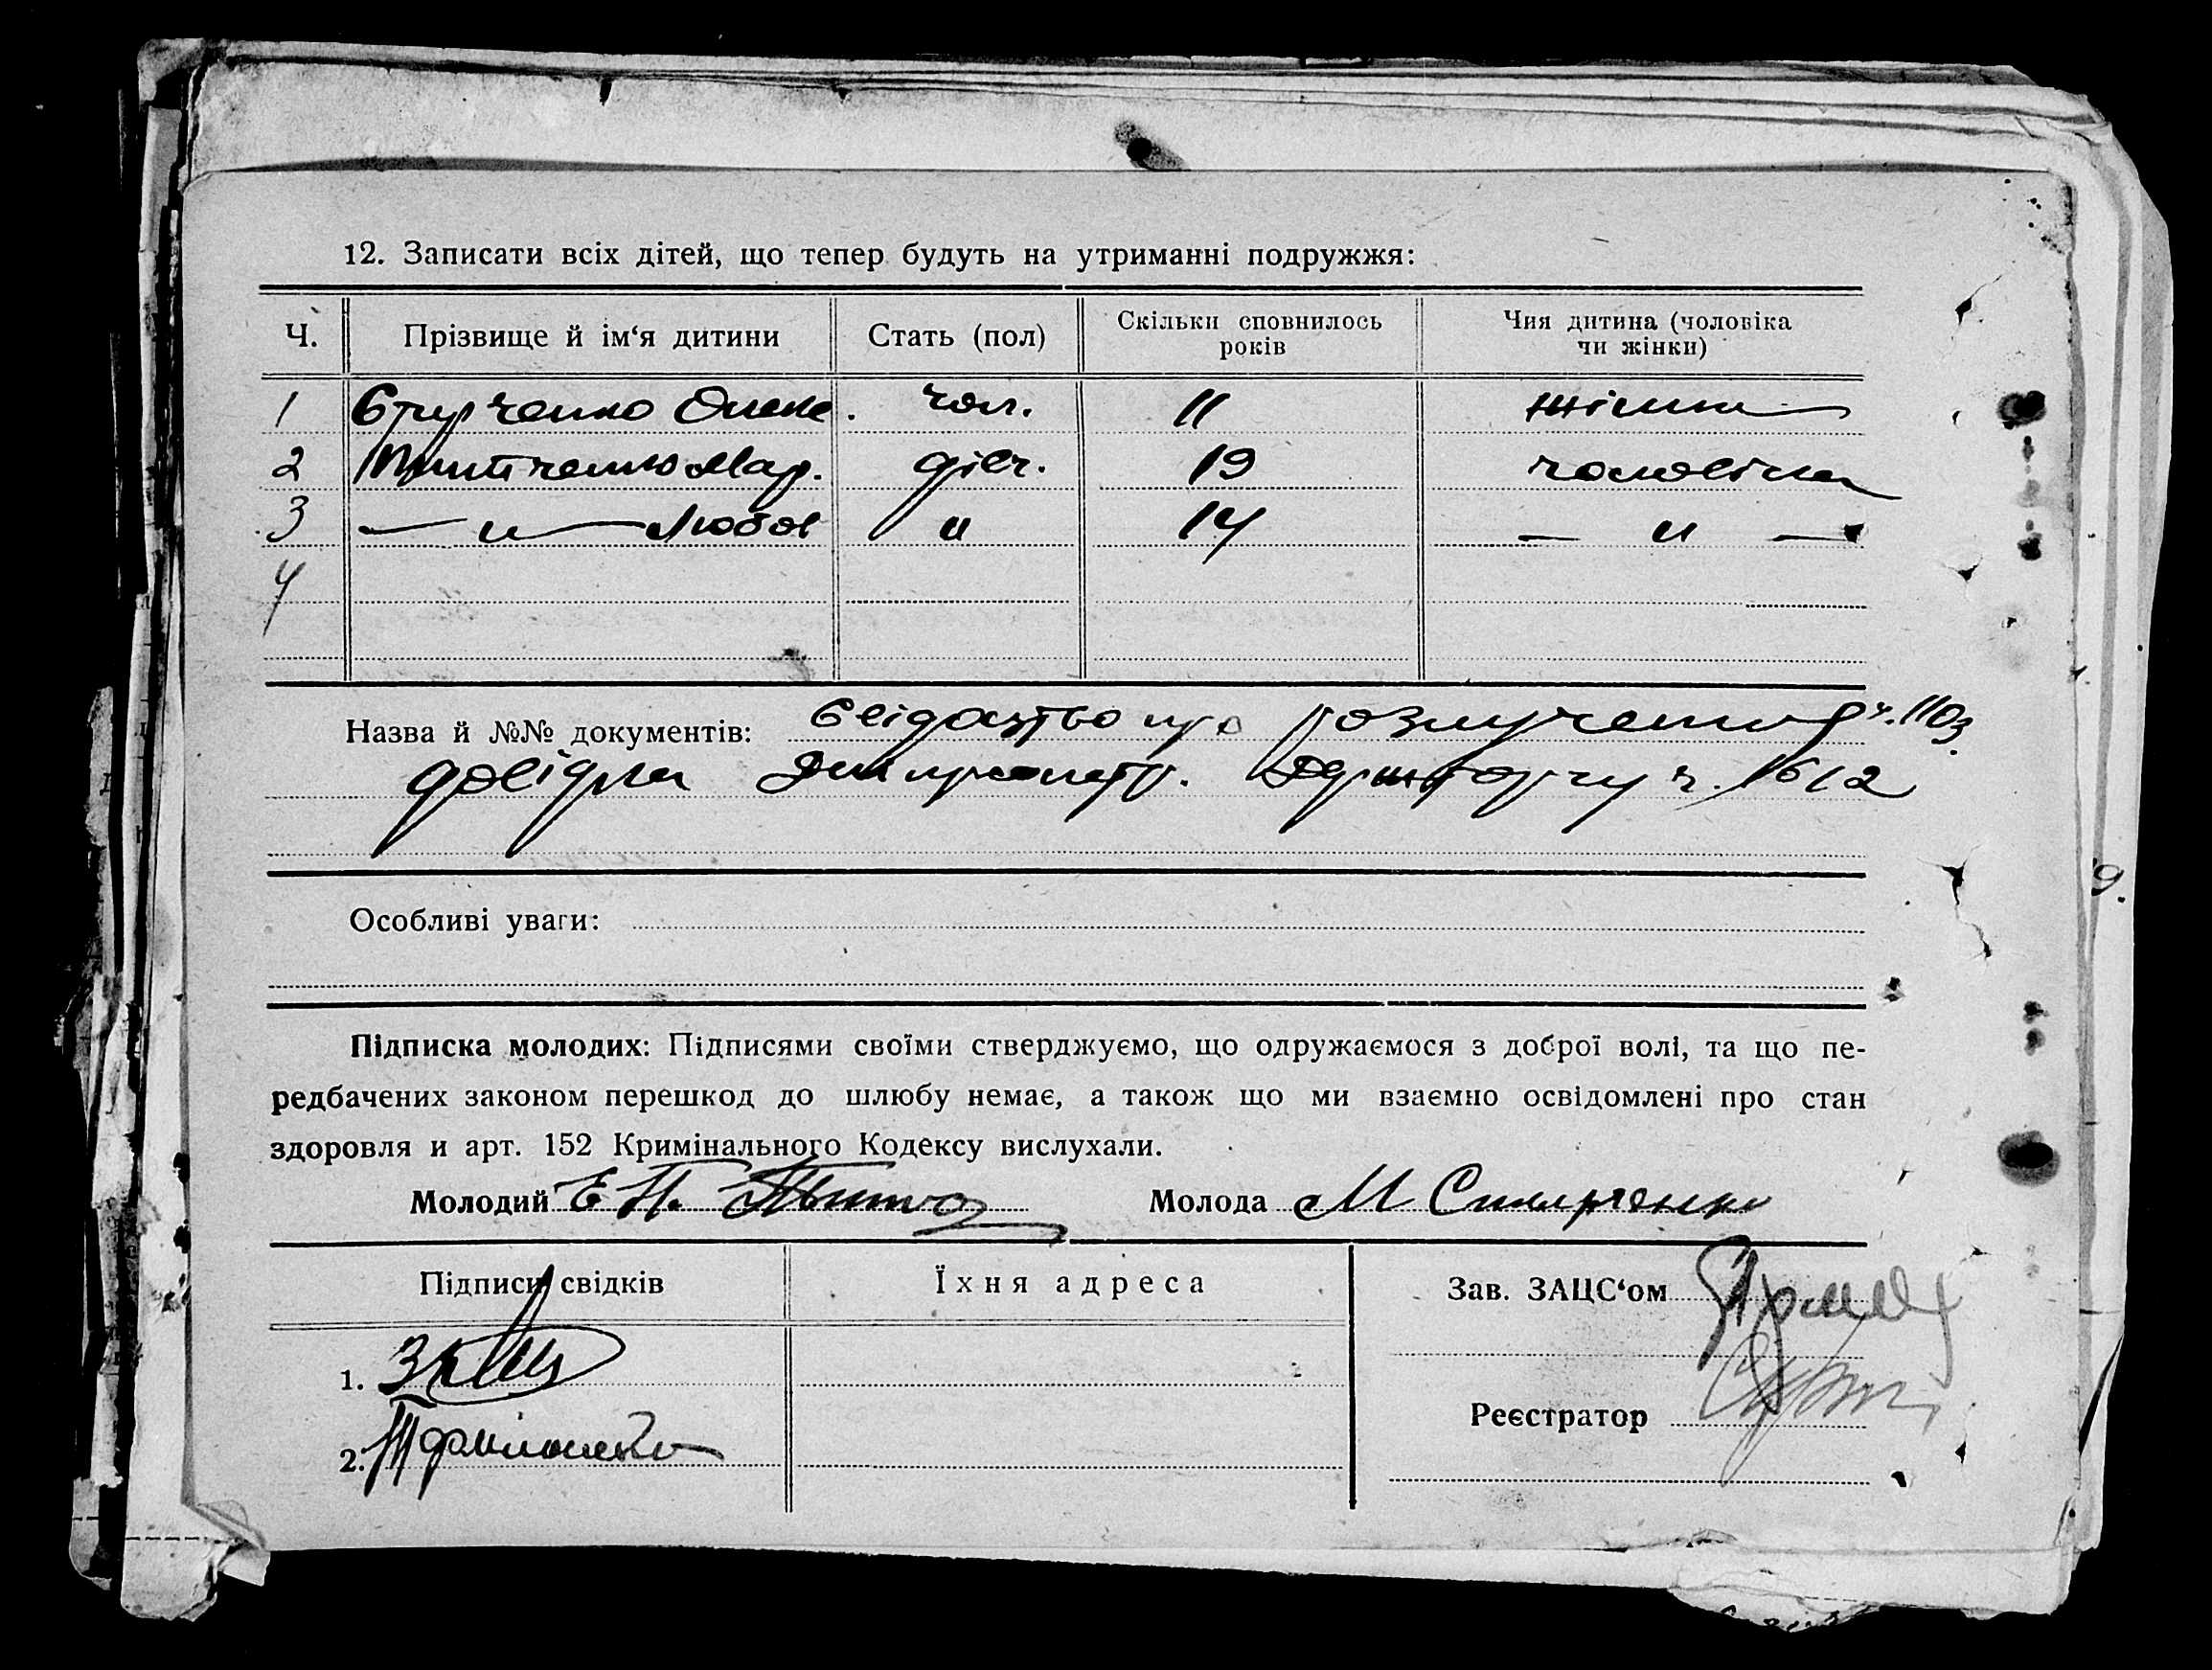 12. Записати всіх дітей, що тепер будуть на утриманні подружжя:
Ч. Прізвище й ім‘я дитини Стать (пол) Скільки сповнилось років Чия дитина (чоловіка чи жінки)
1 чол. 11 жінки
2 Мар. дівч. 19 чоловіка
3 — „ — Любов „ 14 — „ —
4
Назва й №№ документів: Свідоцтво про розлучення ч. 1103.
довідка ч. 1612
Особливі уваги:
Підписка молодих: Підписями своїми стверджуємо, що одружаємося з доброї волі, та що пе-
редбачених законом перешкод до шлюбу немає, а також що ми взаємно освідомлені про стан
здоровля и арт. 152 Кримінального Кодексу вислухали.
Молодий Е П. Молода М
Підписи свідків Їхня адреса Зав. ЗАЦС‘ом
1.
Реєстратор
2.